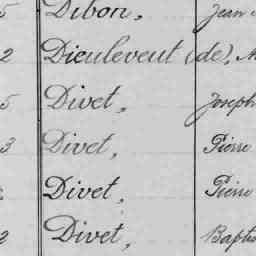 5 Dibon, Jean
2 Dieuleveut (de),
5 Divet, Joseph
3 Divet, Pierre
Divet, Pierre
2 Divet, Baptis